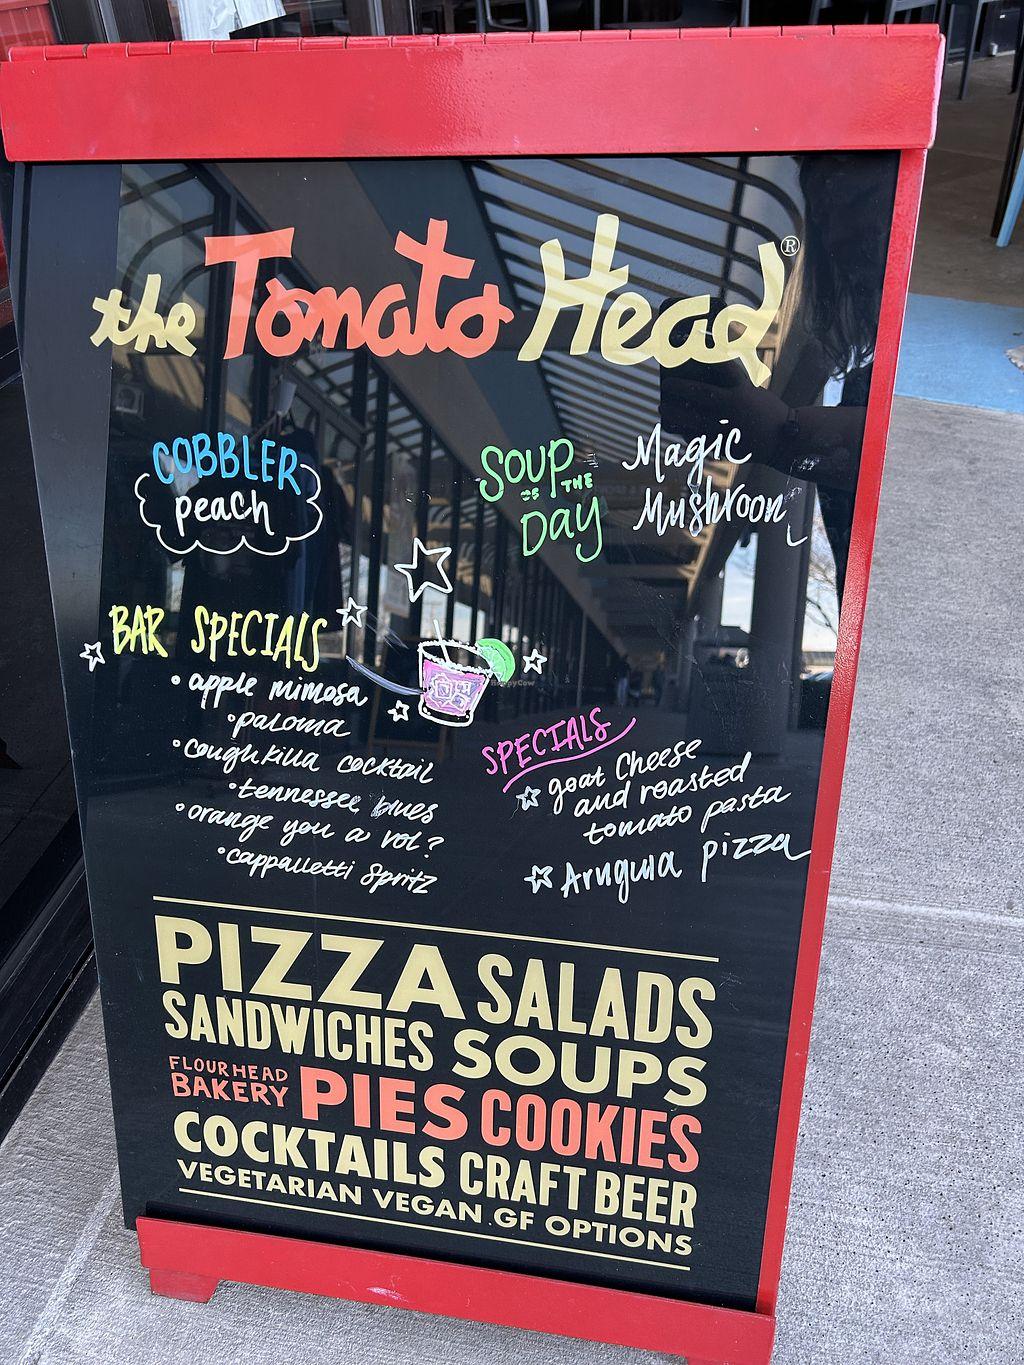 the Tomato Head®
COBBLER
peach
SOUP
OF THE
DAY
Magic
Mushroom
BAR SPECIALS
• apple mimosa
• paloma
• coughkilla cocktail
• tennessee blues
• orange you a vol?
• cappalletti spritz
HappyCow
SPECIALS
goat cheese
and roasted
tomato pasta
Arugula pizza
PIZZA SALADS
SANDWICHES SOUPS
FLOUR HEAD
BAKERY PIES COOKIES
COCKTAILS CRAFT BEER
VEGETARIAN VEGAN GF OPTIONS